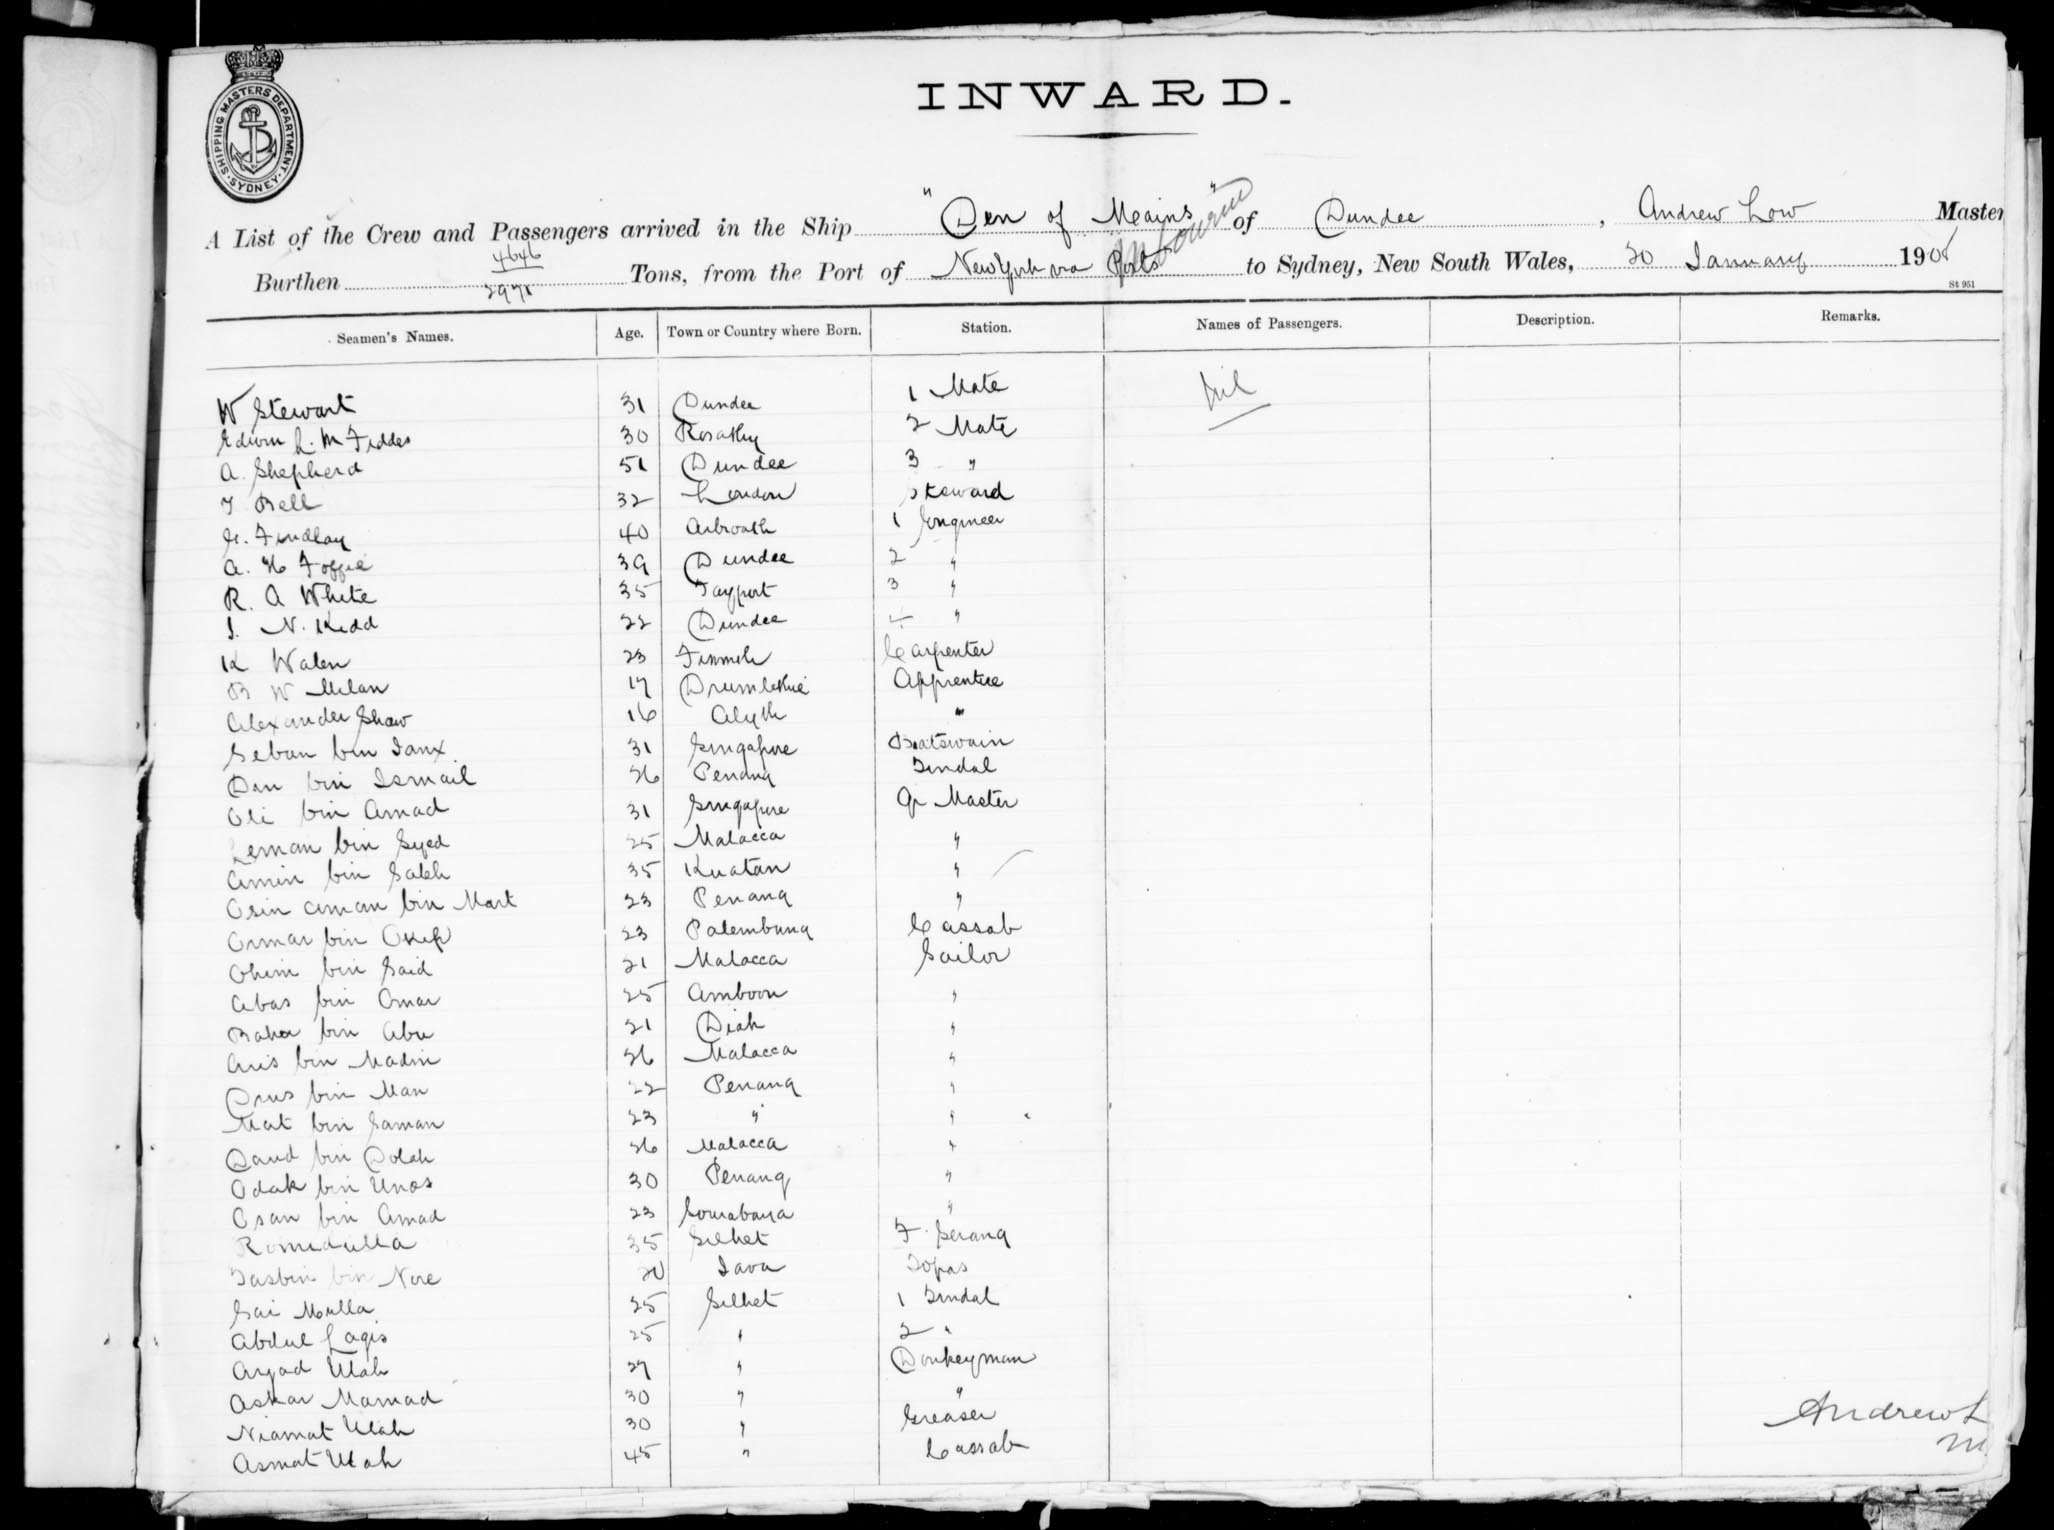 INWARD.
SHIPPING MASTERS DEPARTMENT. SYDNEY.
A List of the Crew and Passengers arrived in the Ship "Den of Mains" of Dundee, Andrew Low Master
Burthen 4646 / 2971 Tons, from the Port of New York via Ports to Sydney, New South Wales, 20 January 190
St 951
Seamen's Names. Age. Town or Country where Born. Station. Names of Passengers. Description. Remarks.
W Stewart 31 Dundee 1 Mate Nil
Edwin L. M Fiddes 30 2 Mate
A. Shepherd 51 Dundee 3 "
T Bell 32 London Steward
G. Findlay 40 Arbroath 1 Engineer
A. H Foggie 39 Dundee 2 "
R. A White 35 Tayport 3 "
J. N. Kidd 22 Dundee 4 "
K Walen 23 Carpenter
B W Milan 17 Drumlithie Apprentice
Alexander Shaw 16 Alyth "
Seban bin 31 Singapore Boatswain
Din bin Ismail 26 Penang Tindal
Oli bin Amad 31 Singapore Qr Master
Leman bin Syed 25 Malacca "
Amin bin Saleh 35 Kuatan "
Osin Aman bin Mart 23 Penang "
Ormar bin 23 Palembang Cassab
Ohim bin Said 21 Malacca Sailor
Abas bin Omar 25 Amboon "
Bahar bin Abu 21 Diah "
Aris bin Madin 26 Malacca "
bin Man 22 Penang "
Mat bin Saman 23 " "
Daud bin Dolah 26 Malacca "
Odak bin Unos 30 Penang "
Osan bin Amad 23 Sourabaya "
Romidulla 35 Silhet F. Serang
Tasbin bin Nore 20 Java Topas
Sai Mulla 25 Silhet 1 Tindal
Abdul Lagis 25 " 2 "
Aryad Ulah 27 " Donkeyman
Askar Mamad 30 " "
Niamat Ulah 30 " Greaser
Asmat Ulah 45 " Cassab
Andrew L
M